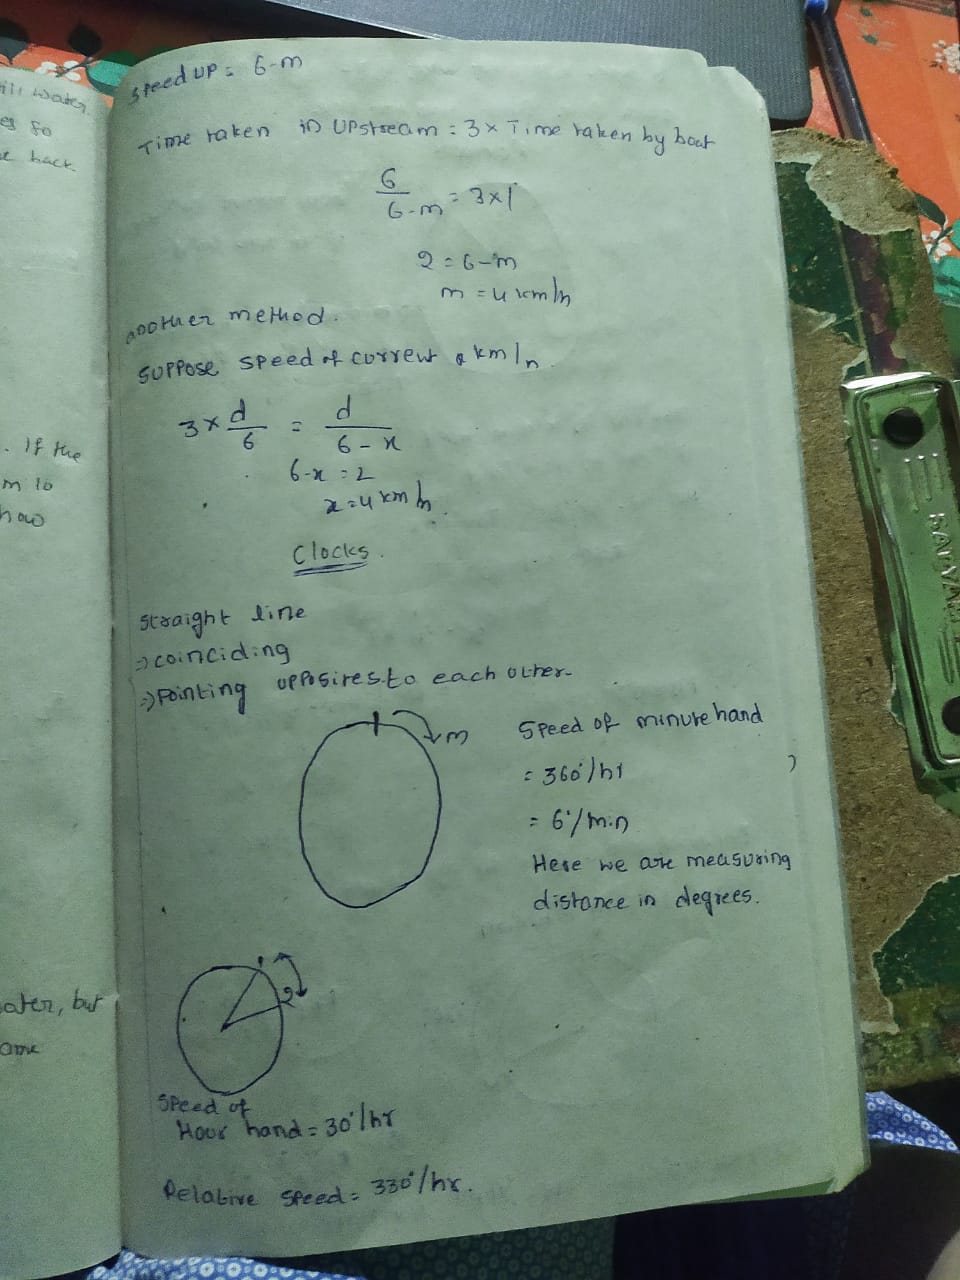 ill water.
es so
e back
. If the
m to
how
water, but
ame
Speed up = 6-m
Time taken in upstream = 3 x Time taken by boat
6/6-m = 3x1
2 = 6-m
m = 4 km/h
another method.
Suppose speed of current x km/h.
3 x d/6 = d/6-x
6-x = 2
x = 4 km/h.
Clocks.
Straight line
⇒ coinciding
⇒ Pointing opposites to each other.
m
Speed of minute hand
= 360°/hr
= 6°/min
Here we are measuring
distance in degrees.
2
Speed of
Hour hand = 30°/hr
Relative speed = 330°/hr.